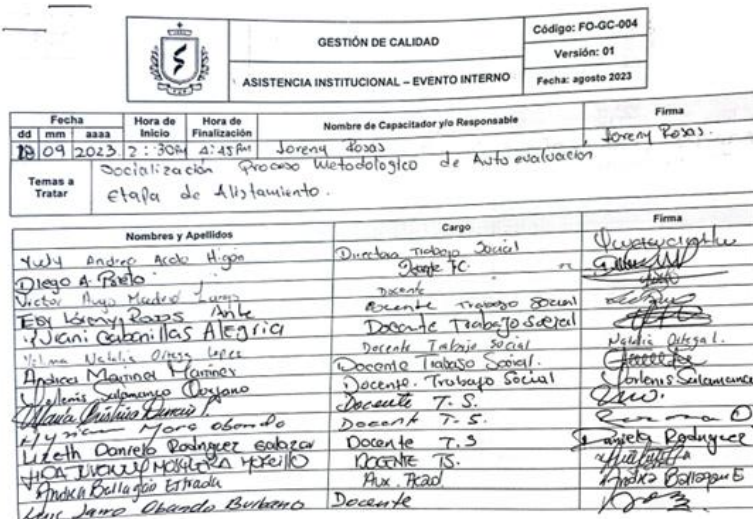 GESTIÓN DE CALIDAD
Código: FO-GC-004
Versión: 01
ASISTENCIA INSTITUCIONAL – EVENTO INTERNO
Fecha: agosto 2023
Fecha Hora de Inicio Hora de Finalización Nombre de Capacitador y/o Responsable Firma
dd mm aaaa
09 2023 2:30PM 4:45PM Loreny Rosas Loreny Rosas.
Temas a Tratar
Socialización Proceso Metodologico de Autoevaluación
Etapa de Alistamiento.
Nombres y Apellidos Cargo Firma
Yudy Andrea Directora Trabajo Social
Diego A. Prieto Docente TC.
Victor Hugo Madrid Docente
Loreny Rosas Ante Docente Trabajo Social
Yuliani Cabanillas ALEGRIA Docente Trabajo Social
Natalia Ortega Lopez Docente Trabajo Social Natalia Ortega L.
Andrea Martinez Martinez Docente Trabajo Social.
Yorlenis Salamanca Docente. Trabajo Social Yorlenis Salamanca
Maria Cristina Docente T.S.
Myriam Mora Obando Docente T.S.
Lizeth Daniela Rodriguez Salazar Docente T.S Daniela Rodriguez
MOSQUERA DOCENTE TS.
Andrea Ballagan Estrada Aux. Acad Andrea Ballagan E
Jairo Obando Burbano Docente